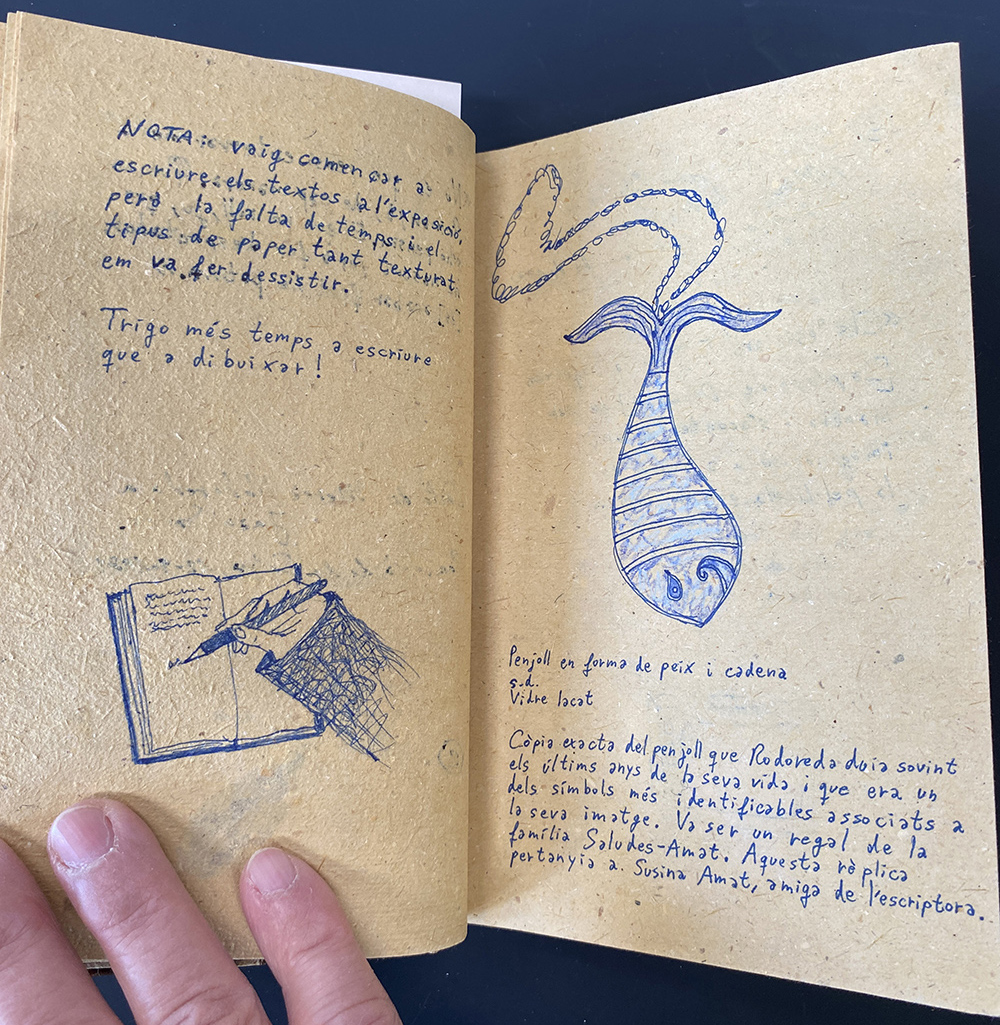 NOTA: vaig començar a
escriure els textos a l'exposició,
però la falta de temps i el
tipus de paper tant texturat
em va fer dessistir.
Trigo més temps a escriure
que a dibuixar!
Penjoll en forma de peix i cadena
s.d.
Vidre lacat
Còpia exacta del penjoll que Rodoreda duia sovint
els últims anys de la seva vida i que era un
dels símbols més identificables associats a
la seva imatge. Va ser un regal de la
família Saludes-Amat. Aquesta rèplica
pertanyia a Susina Amat, amiga de l'escriptora.